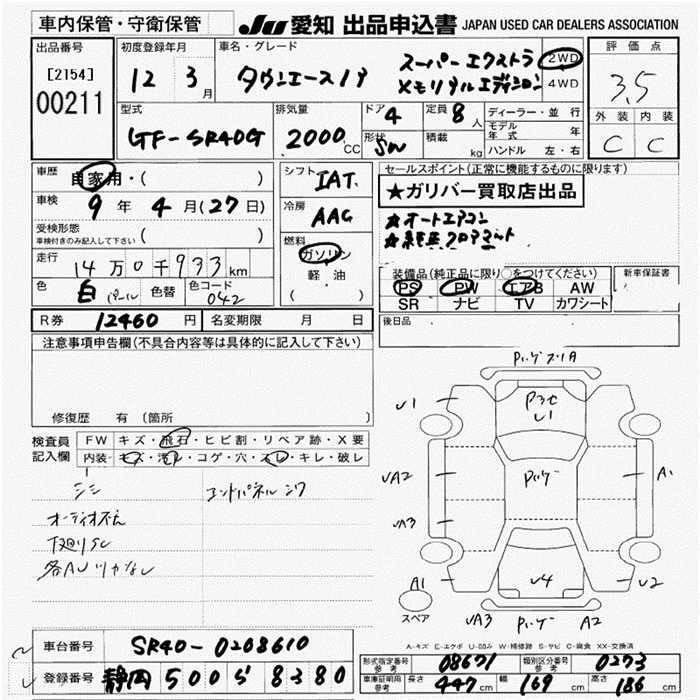 車内保管・守衛保管
JU 愛知 出品申込書 JAPAN USED CAR DEALERS ASSOCIATION
出品番号
[2154]
00211
初度登録年月
12 3月
車名・グレード
タウンエースノア
スーパーエクストラ
メモリアルエディション
2WD
4WD
評価点
3.5
外装 内装
C C
型式
GF-SR40G
排気量
2000 CC
ドア 4
形状 SW
定員 8人
積載 kg
ディーラー・並行
モデル年式 年
ハンドル 左・右
車歴
自家用・( )
車検
9年4月(27日)
受検形態
車検付きのみ記入して下さい ( )
走行
14万0千933km
色 白 パール 色替 色コード 042
シフト
IAT
冷房
AAC
燃料
ガソリン
軽・油
( )
セールスポイント(正常に機能するものに限ります)
★ガリバー買取店出品
★オートエアコン
装備品(純正品に限り○をつけてください)
PS PW エアB AW
SR ナビ TV カワシート
新車保証書
後日品
R券 12460円 名変期限 月 日
注意事項申告欄(不具合内容等は具体的に記入して下さい)
修復歴 有(箇所
検査員
記入欄
FW キズ・飛石・ヒビ割・リペア跡・X要
内装 キズ・汚レ・コゲ・穴・スレ・キレ・破レ
オーディオ不ム
下廻りSC
各AUツカなし
エンドパネルシワ
U1
UA2
UA3
A1
U1
A1
U2
U4
UA3
A2
スペア
A-キズ E-エクボ U-凹み W-補修跡 S-サビ C-腐食 XX-交換済
車台番号 SR40-0208610
登録番号 静岡 500 ら 8380
形式指定番号 参考 08671 類別区分番号 参考 0273
車庫証明用 参考 長さ 447cm 幅 169cm 高さ 186cm